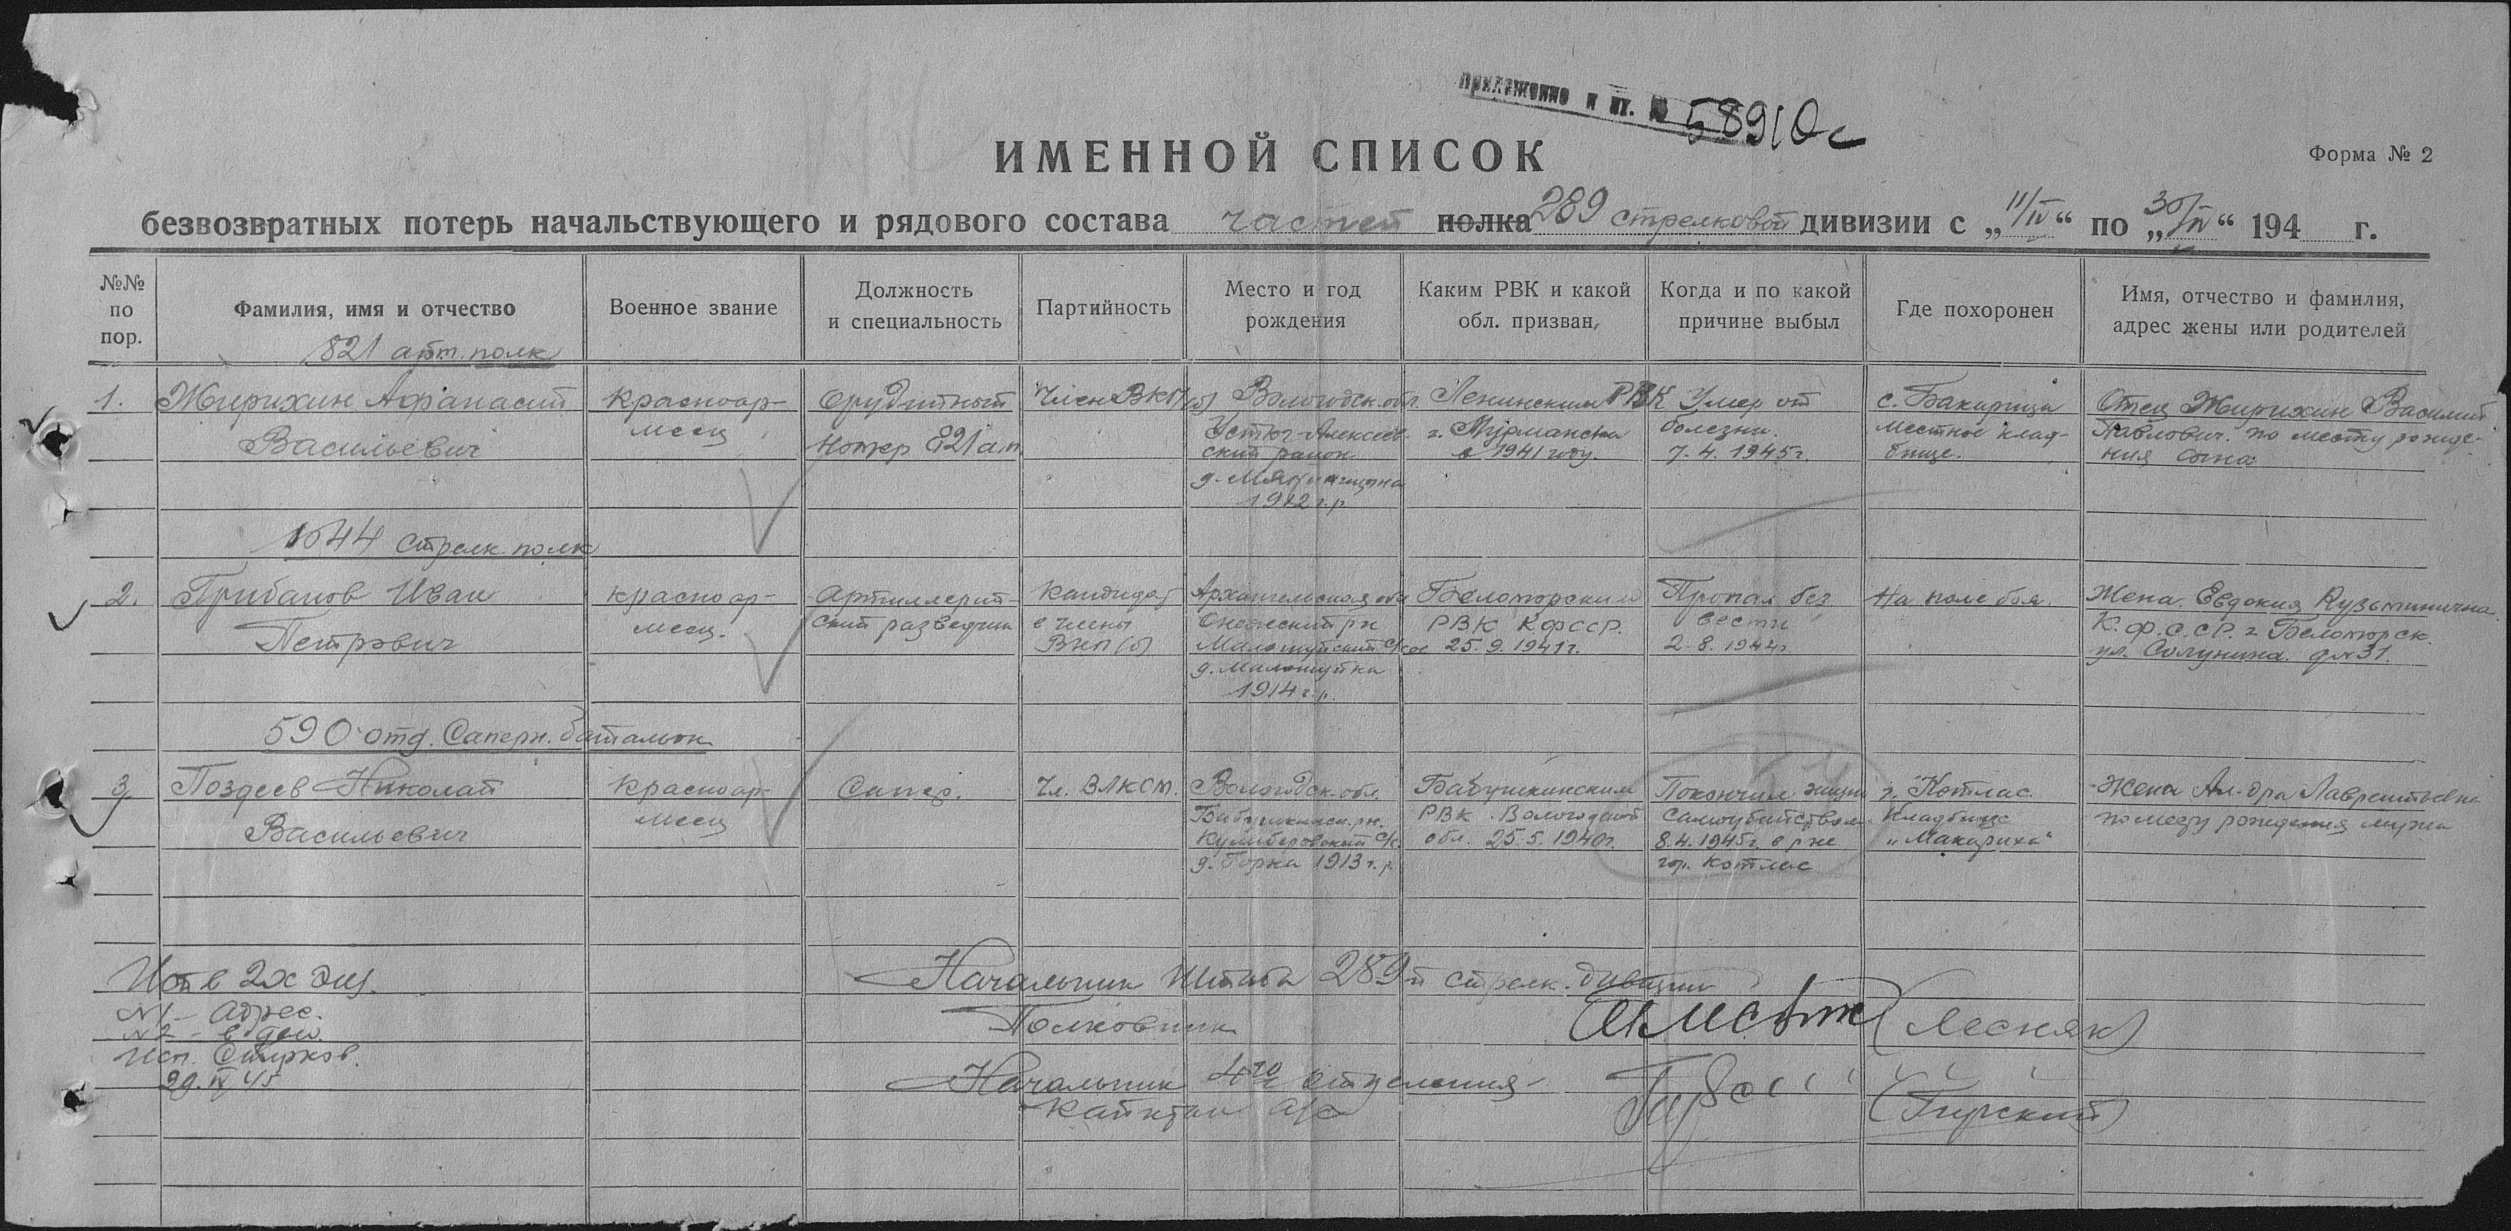 Приложение к вх. № 58910с
ИМЕННОЙ СПИСОК
Форма № 2
безвозвратных потерь начальствующего и рядового состава частей полка 289 стрелковой дивизии с „11/IV“ по „30/IV“ 194 г.
№№ по пор.
Фамилия, имя и отчество
Военное звание
Должность и специальность
Партийность
Место и год рождения
Каким РВК и какой обл. призван,
Когда и по какой причине выбыл
Где похоронен
Имя, отчество и фамилия, адрес жены или родителей
821 арт. полк
1. Жирихин Афанасий Красноар- Орудийный Член ВКП(б) Вологодск. обл. Ленинским РВК Умер от с. Бакарица Отец Жирихин Василий
Васильевич меец номер 821 ап. Устюг-Алексеев- г. Мурманска болезни. местное клад- Павлович. по месту рожде-
ский район в 1941 году. 7.4.1945г. бище. ния сына
д. Мякинницына
1912 г.р.
1044 стрелк. полк
2. Грибанов Иван красноар- Артиллерий- Кандидат Архангельская обл Беломорским Пропал без На поле боя. Жена Евдокия Кузьминична
Петрович меец. ский разведчик в члены Онежский р-н РВК КФССР. вести К.Ф.С.С.Р. г. Беломорск.
ВКП(б) Малошуйский с/сов 25.9.1941г. 2.8.1944г. ул. Солунина. д № 31.
д. Малошуйка
1914 г.р.
590 отд. Саперн. батальон
3. Поздеев Николай Красноар- Сапер. Чл. ВЛКСМ. Вологодск. обл. Бабушкинским Покончил жизнь г. Котлас Жена Ал-дра Лаврентьевна
Васильевич меец Бабушкинск. р-н. РВК Вологодской самоубийством Кладбище по месту рождения мужа
с/с. обл. 25.5.1940г. 8.4.1945г. в р-не „Макариха“
д. Горка 1913 г.р. гор. Котлас
Исп в 2х экз. Начальник Штаба 289й стрелк. дивизии
№1 - Адрес.
№2 - в дело. Полковник (Лесняк)
Исп. Смирнов.
29.IV 45 Начальник 4го отделения
Капитан а/с (Гурский)